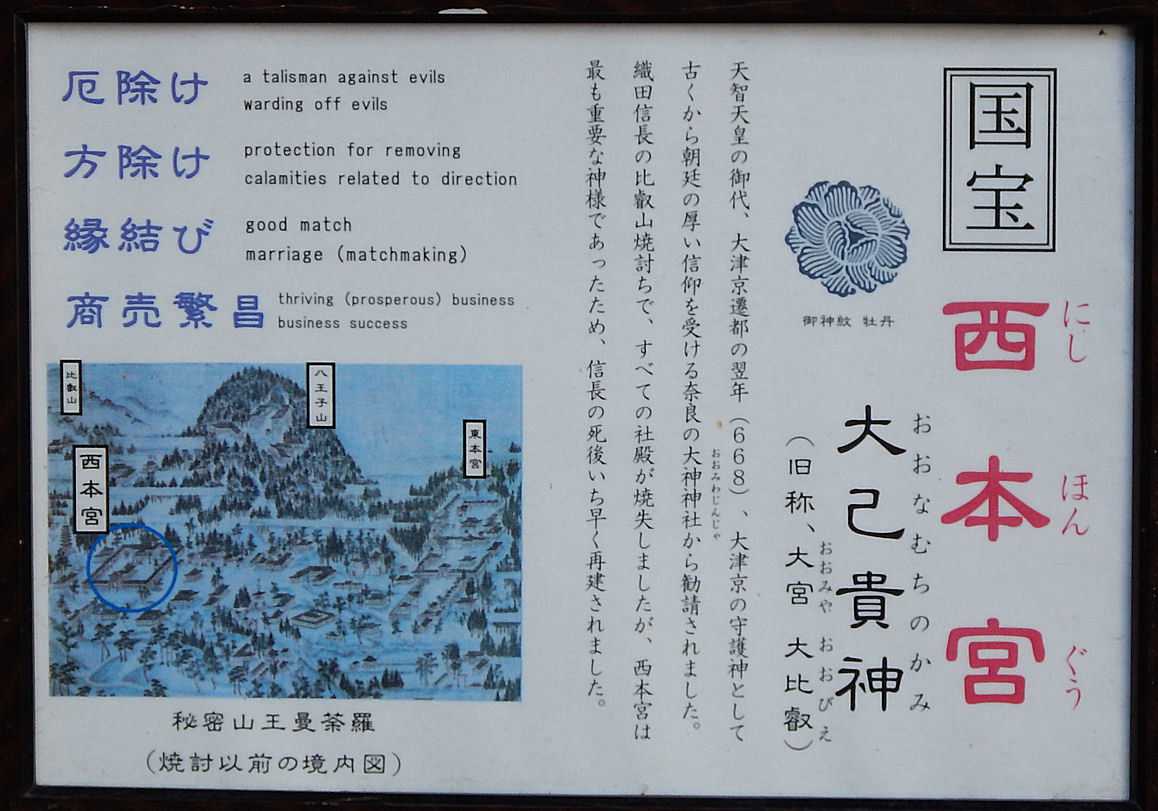 国宝
西本宮
にし ほん ぐう
大己貴神
おおなむちのかみ
（旧称、大宮 大比叡）
おおみや おおびえ
御神紋 牡丹
天智天皇の御代、大津京遷都の翌年（668）、大津京の守護神として
古くから朝廷の厚い信仰を受ける奈良の大神神社から勧請されました。
おおみわじんじゃ
織田信長の比叡山焼討ちで、すべての社殿が焼失しましたが、西本宮は
最も重要な神様であったため、信長の死後いち早く再建されました。
厄除け
a talisman against evils
warding off evils
方除け
protection for removing
calamities related to direction
縁結び
good match
marriage (matchmaking)
商売繁昌
thriving (prosperous) business
business success
比叡山
八王子山
東本宮
西本宮
秘密山王曼荼羅
（焼討以前の境内図）